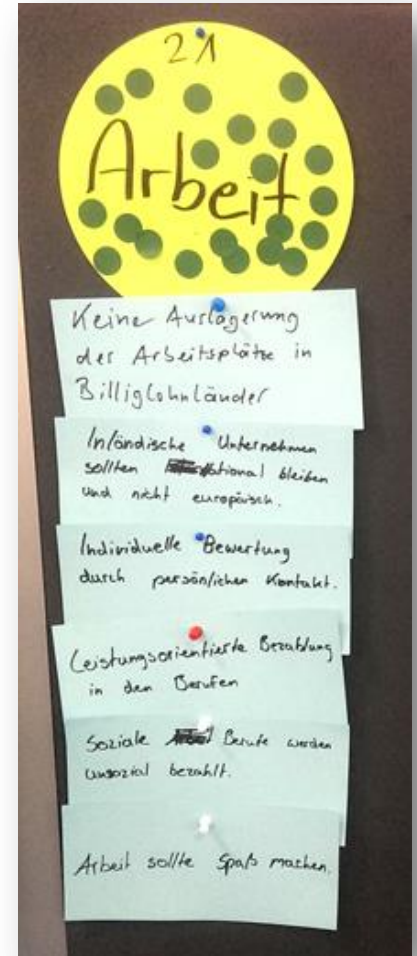 21
Arbeit
Keine Auslagerung
der Arbeitsplätze in
Billiglohnländer
Inländische Unternehmen
sollten national bleiben
und nicht europäisch.
Individuelle Bewertung
durch persönlichen Kontakt.
Leistungsorientierte Bezahlung
in den Berufen
Soziale Berufe werden
unsozial bezahlt.
Arbeit sollte Spaß machen.